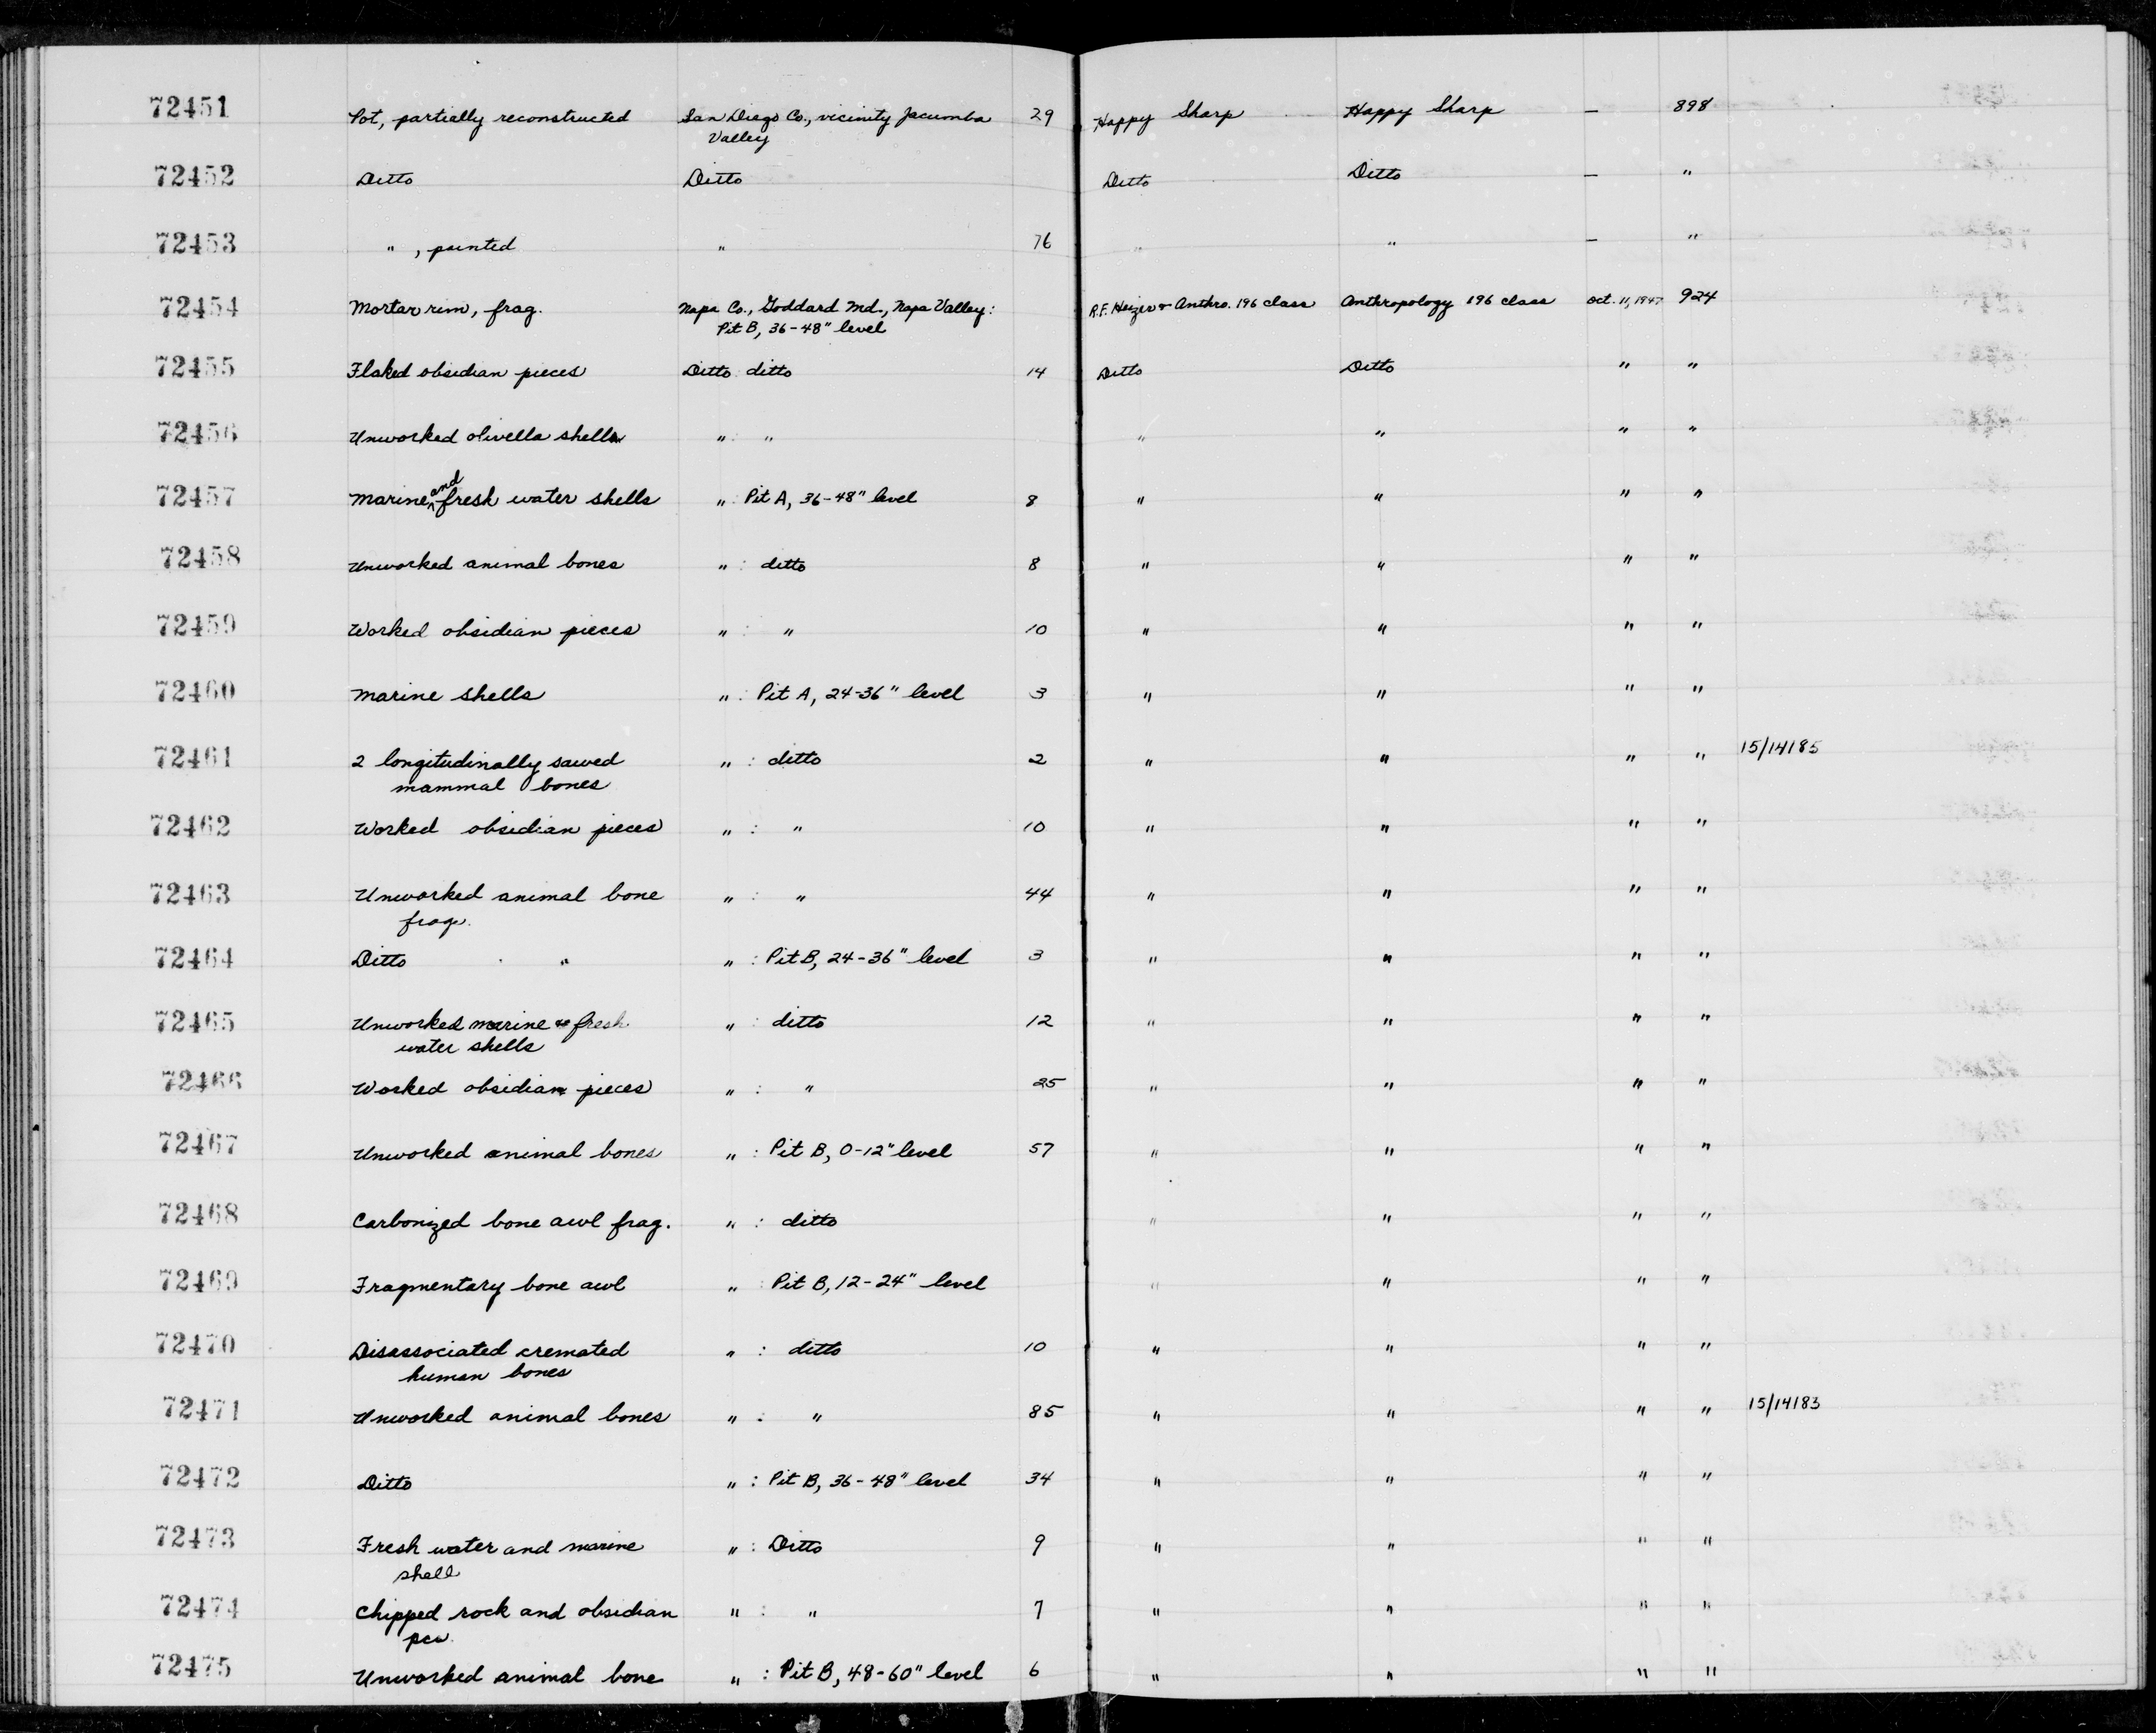 72451 Pot, partially reconstructed San Diego Co., vicinity Jacumba 29 Happy Sharp Happy Sharp — 898
Valley
72452 Ditto Ditto Ditto Ditto — "
72453 " , painted " 76 " " — "
72454 Mortar rim, frag. Napa Co., Goddard Md., Napa Valley: R.F. Heizer & Anthro. 196 class Anthropology 196 class Oct. 11, 1947 924
Pit B, 36-48" level
72455 Flaked obsidian pieces Ditto : ditto 14 Ditto Ditto " "
72456 Unworked olivella shells " : " " " " "
72457 Marine and fresh water shells " : Pit A, 36-48" level 8 " " " "
72458 Unworked animal bones " : ditto 8 " " " "
72459 Worked obsidian pieces " : " 10 " " " "
72460 Marine shells " : Pit A, 24-36" level 3 " " " "
72461 2 longitudinally sawed " : ditto 2 " " " " 15/14185
mammal bones
72462 Worked obsidian pieces " : " 10 " " " "
72463 Unworked animal bone " : " 44 " " " "
frag.
72464 Ditto " " : Pit B, 24-36" level 3 " " " "
72465 Unworked marine & fresh " : ditto 12 " " " "
water shells
72466 Worked obsidian pieces " : " 25 " " " "
72467 Unworked animal bones " : Pit B, 0-12" level 57 " " " "
72468 Carbonized bone awl frag. " : ditto " " " "
72469 Fragmentary bone awl " : Pit B, 12-24" level " " " "
72470 Disassociated cremated " : ditto 10 " " " "
human bones
72471 Unworked animal bones " : " 85 " " " " 15/14183
72472 Ditto " : Pit B, 36-48" level 34 " " " "
72473 Fresh water and marine " : Ditto 9 " " " "
shell
72474 Chipped rock and obsidian " : " 7 " " " "
pcs.
72475 Unworked animal bone " : Pit B, 48-60" level 6 " " " "